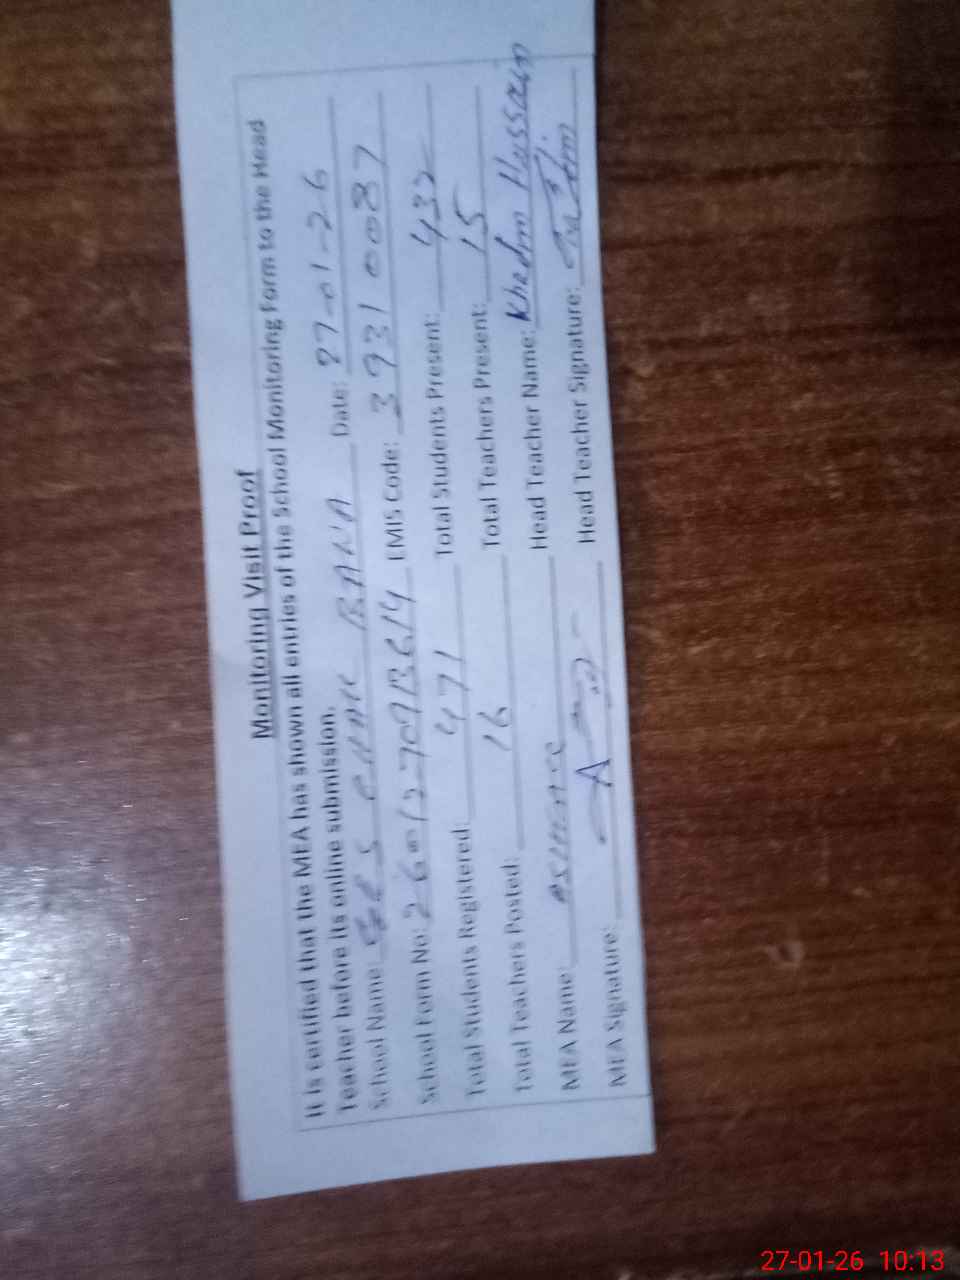 Monitoring Visit Proof
It is certified that the MEA has shown all entries of the School Monitoring Form to the Head
Teacher before its online submission.
School Name: GES CHAK Date: 27-01-26
School Form No: EMIS Code: 39310087
Total Students Registered: 471 Total Students Present: 432
Total Teachers Posted: 16 Total Teachers Present: 15
MEA Name: Head Teacher Name: Khadim Hussain
MEA Signature: Head Teacher Signature:
27-01-26 10:13